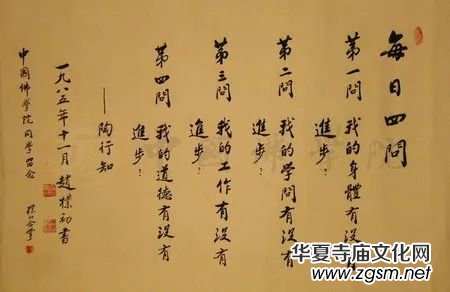 每日四問
第一問 我的身體有没有
進步?
第二問 我的學問有没有
進步?
第三問 我的工作有没有
進步?
第四問 我的道德有没有
進步?
——陶行知
一九八五年十一月趙樸初書
中国佛學院同學留念
华夏寺庙文化网
www.zgsm.net